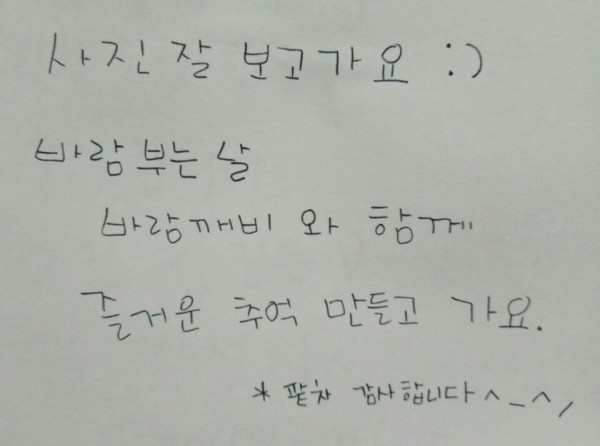 사진 잘 보고가요 :)
바람 부는 날
바람깨비 와 함께
즐거운 추억 만들고 가요.
* 팥차 감사합니다^_^/